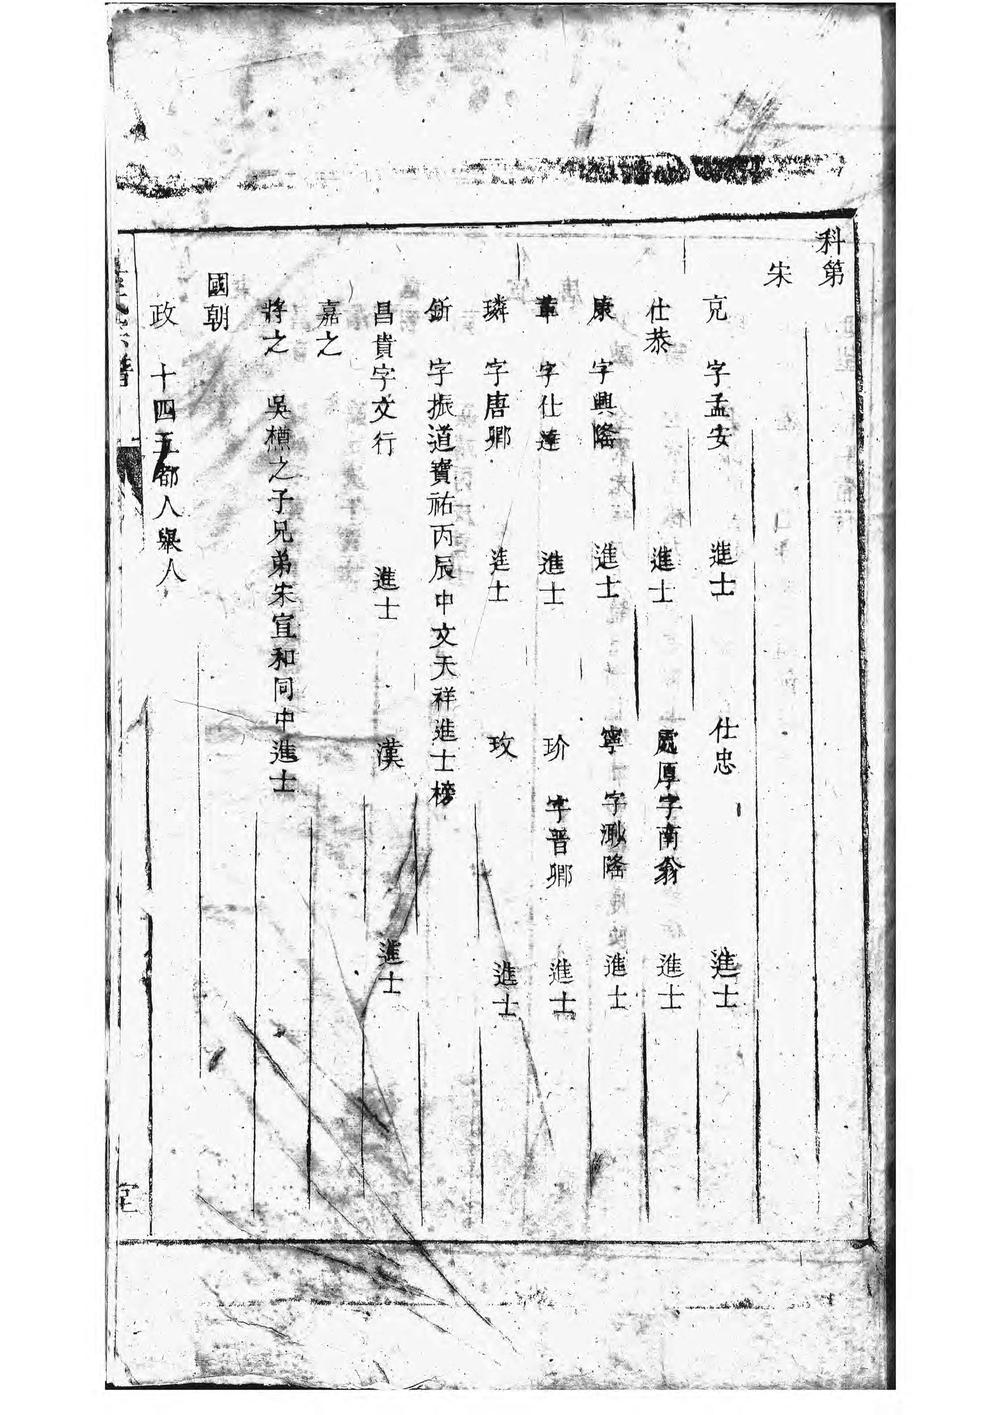 科第
宋
克 字孟安 進士 仕忠 進士
仕恭 進士 處厚字南翁 進士
康 字興隆 進士 寧 字渺隆 進士
革 字仕達 進士 玠 字晋卿 進士
璘 字唐卿 進士 玫 進士
釿 字振道寶祐丙辰中文天祥進士榜
昌貴字文行 進士 漢 進士
嘉之
將之 吳樌之子兄弟宋宣和同中進士
國朝
政 十四五都人舉人
宗譜
堂